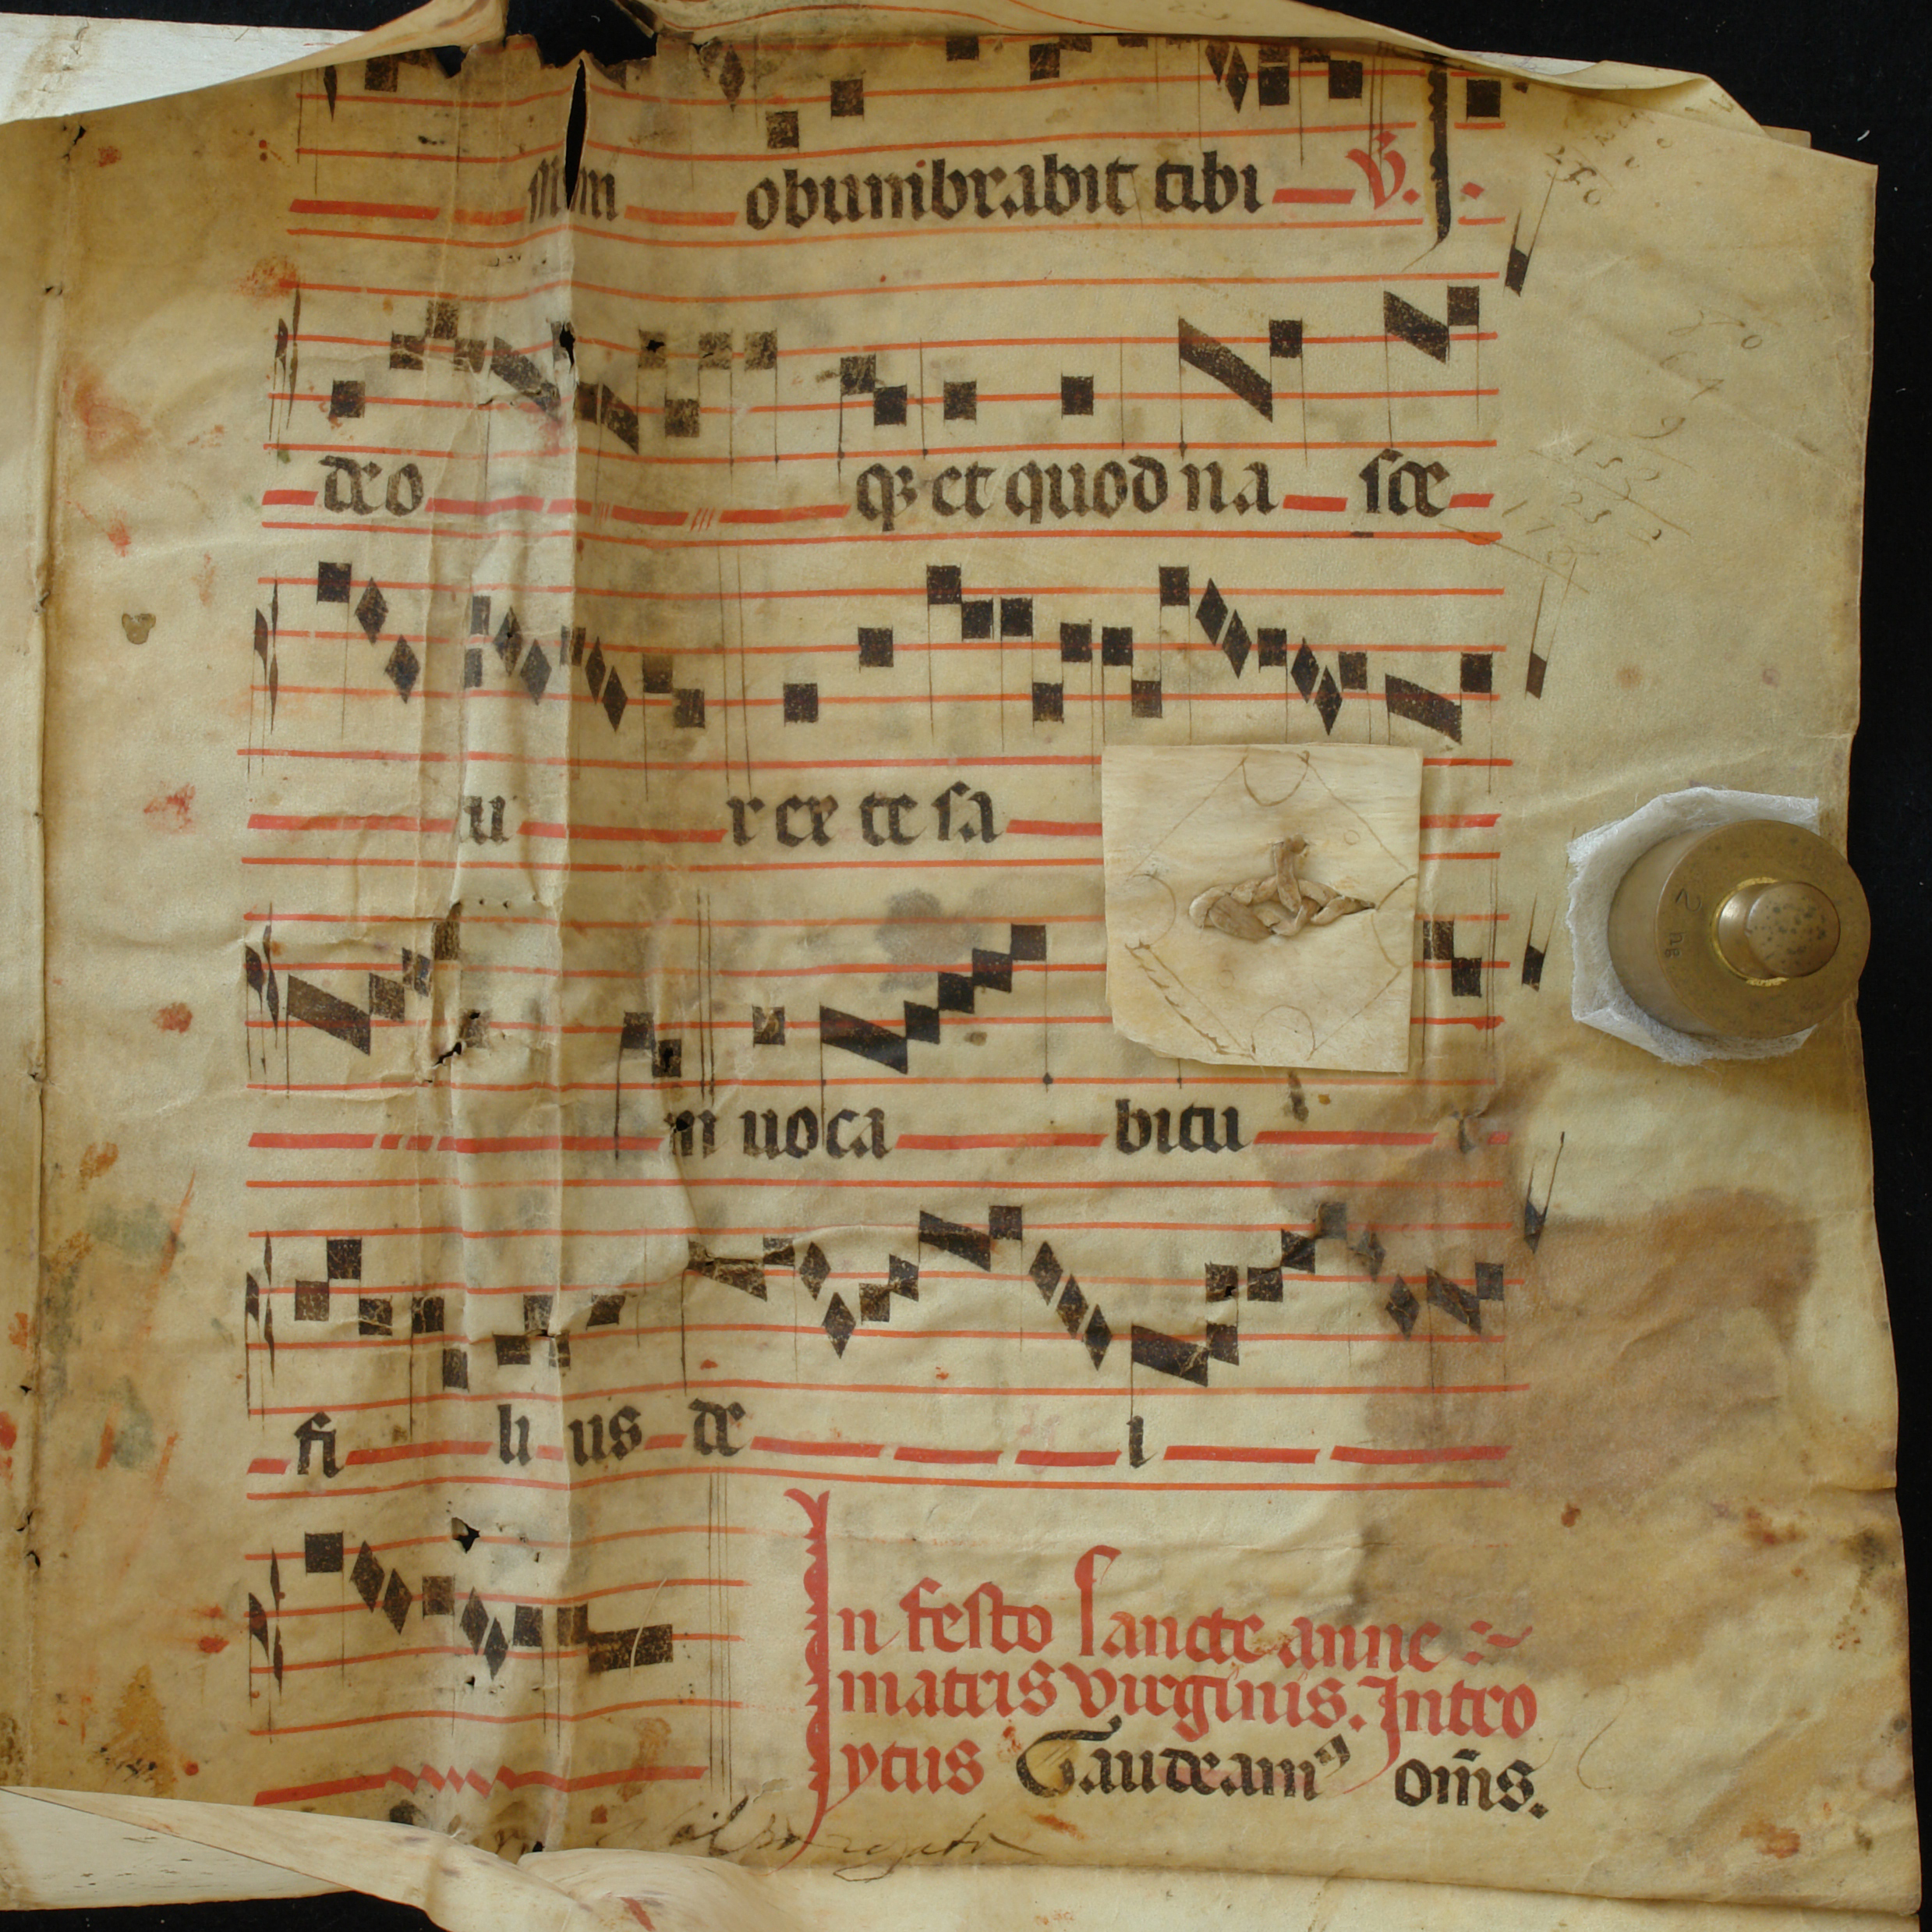 obumbrabit tibi ℣. I
deo qꝫ et quod na sce
tu r ex te sa
m uoca bitu r
fi li us de i
In festo sancte anne
matris virginis. Intro
ytus Gaudeamꝰ om̄s.